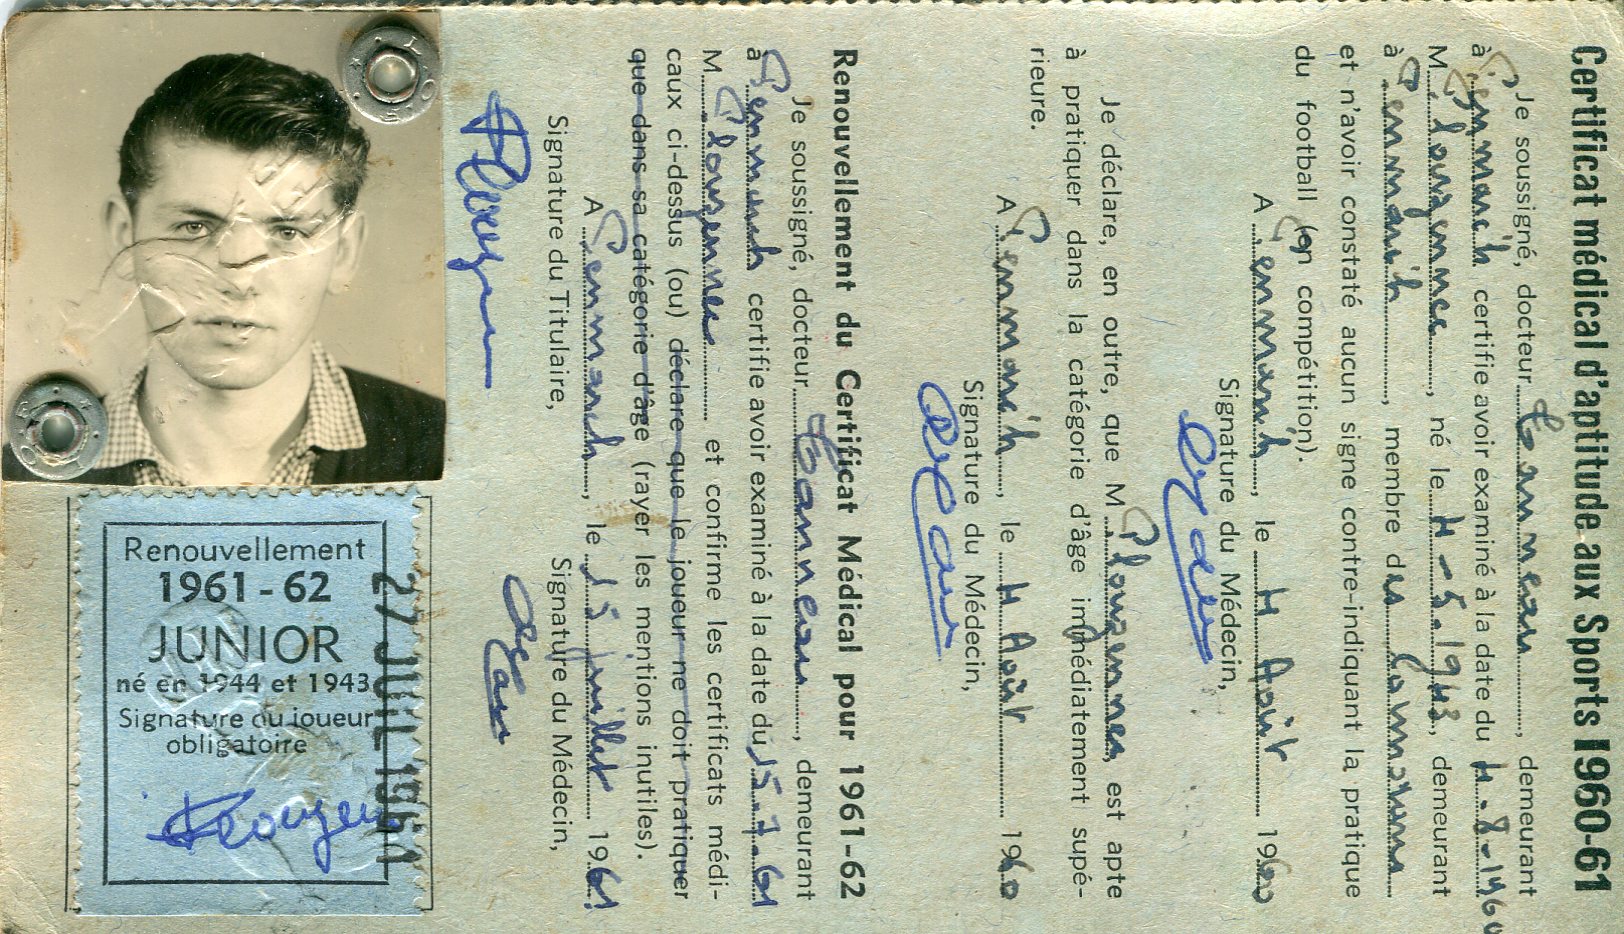 Certificat médical d'aptitude aux Sports 1960-61
Je soussigné, docteur Canneau, demeurant
à Penmarch certifie avoir examiné à la date du 4.8-1960
M. Plouzennec, né le 4-5.1943, demeurant
à Penmarch, membre des
et n'avoir constaté aucun signe contre-indiquant la pratique
du football (en compétition).
A Penmarch, le 4 Août 1960
Signature du Médecin,
Je déclare, en outre, que M. Plouzennec, est apte
à pratiquer dans la catégorie d'âge immédiatement supé-
rieure.
A Penmarch, le 4 Août 1960
Signature du Médecin,
Renouvellement du Certificat Médical pour 1961-62
Je soussigné, docteur Canneau, demeurant
à Penmarch certifie avoir examiné à la date du 15.7.61
M. Plouzennec et confirme les certificats médi-
caux ci-dessus (ou) déclare que le joueur ne doit pratiquer
que dans sa catégorie d'âge (rayer les mentions inutiles).
A Penmarch, le 15 juillet 1961
Signature du Titulaire, Signature du Médecin,
Renouvellement
1961-62
JUNIOR
né en 1944 et 1943
Signature du joueur
obligatoire
27 JUIL 1961